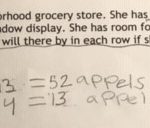 orhood grocery store. She has
ndow display. She has room fo
will there by in each row if s
13 =52 appels
4 =13 appel